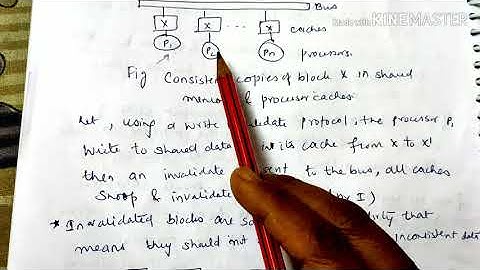 Bus
Made with KINEMASTER
X X ... X caches
P1 Pn processors.
Fig Consistent copies of block X in shared
memory & processor caches.
let, using a write validate protocol, the processor P1
write to shared data its cache from X to X'
then an invalidate sent to the bus, all caches
Snoop & invalidate by I)
* Invalidated blocks are that
means they should not inconsistent data